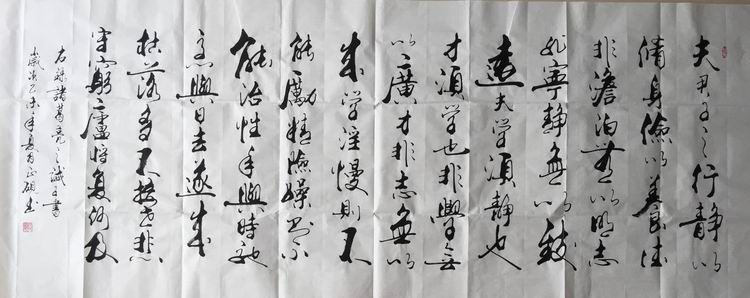 夫君子之行静以
脩身儉以養德
非澹泊無以明志
非寧静無以致
遠夫學須静也
才須學也非學無
以廣才非志無以
成學淫慢則不
能勵精險躁則不
能治性年與時馳
意與日去遂成
枯落多不接世悲
守窮廬將復何及
右録諸葛亮之誡子書
歲次乙未年夏